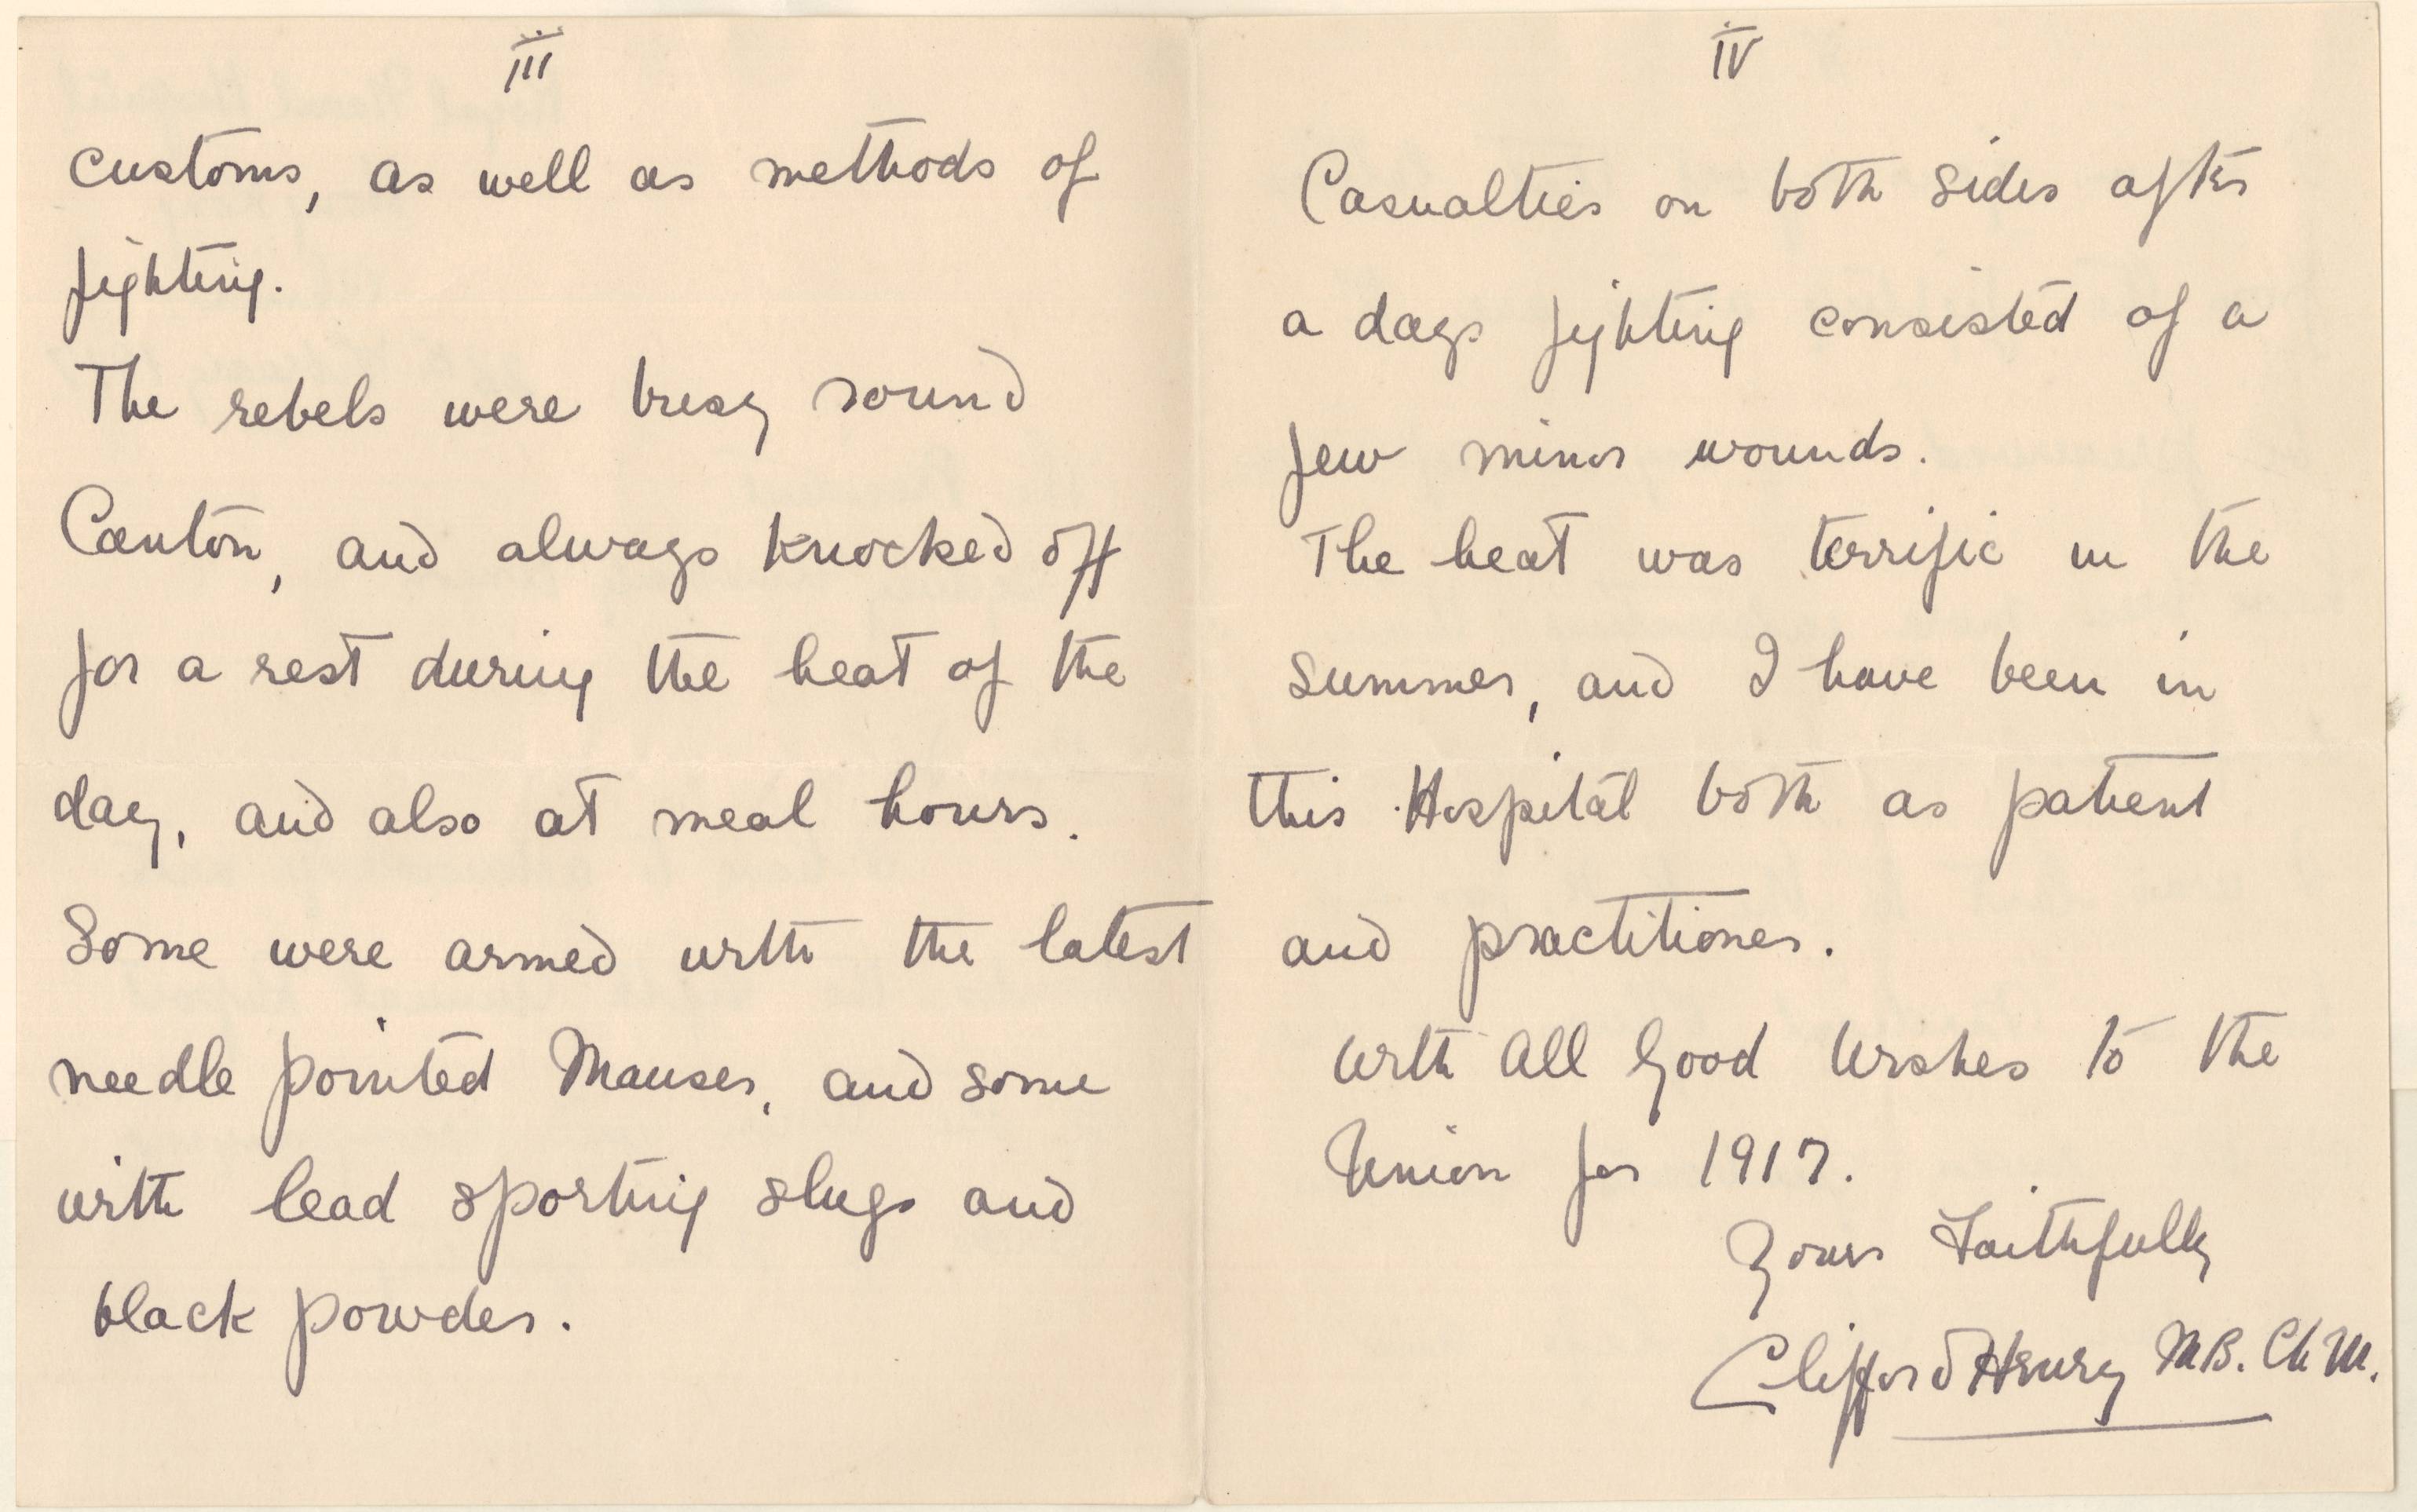 III
customs, as well as methods of
fighting.
The rebels were busy round
Canton, and always knocked off
for a rest during the heat of the
day, and also at meal hours.
Some were armed with the latest
needle pointed Mauser, and some
with lead sporting slugs and
black powder.
IV
Casualties on both sides after
a days fighting consisted of a
few minor wounds.
The heat was terrific in the
summer, and I have been in
this Hospital both as patient
and practitioner.
With All Good Wishes to the
Union for 1917.
Yours Faithfully
Clifford Henry MB. Ch M.